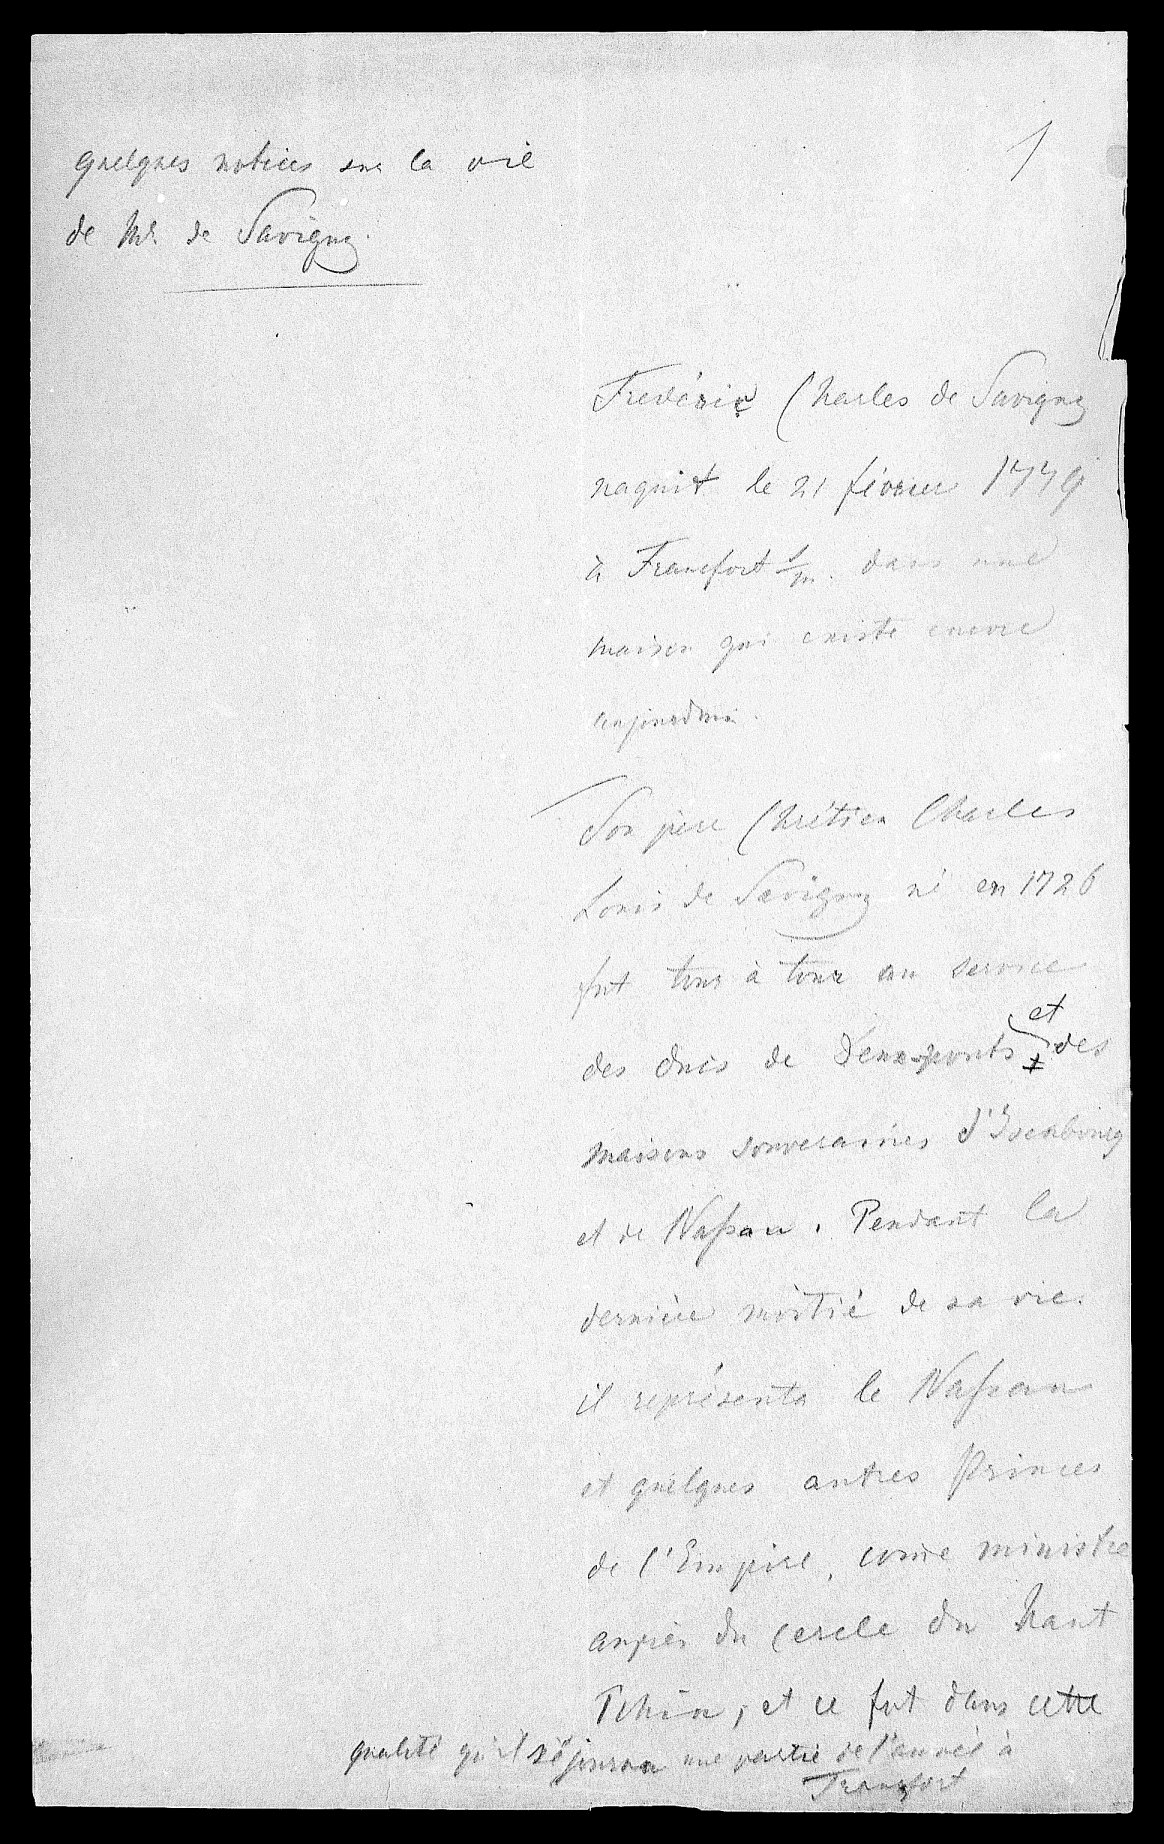 quelques notices sur la vie
de Mr. de Savigny.
1
Fredéric Charles de Savigny
naquit le 21 février 1779
à Francfort s/m. dans une
maison qui existe encore
aujourdhui.
Son père Chrétien Charles
Louis de Savigny né en 1726
fut tour à tour au service
des ducs de Deux-ponts et des
maisons souveraines d'Isenbourg
et de Naſsau. Pendant la
dernière moitié de sa vie.
il représenta le Naſsau
et quelques autres Princes
de l'Empire, come ministre
auprès du Cercle du haut
Rhin, et ce fut dans cette
qualité qu'il séjourna une partie de l'année à
Francfort